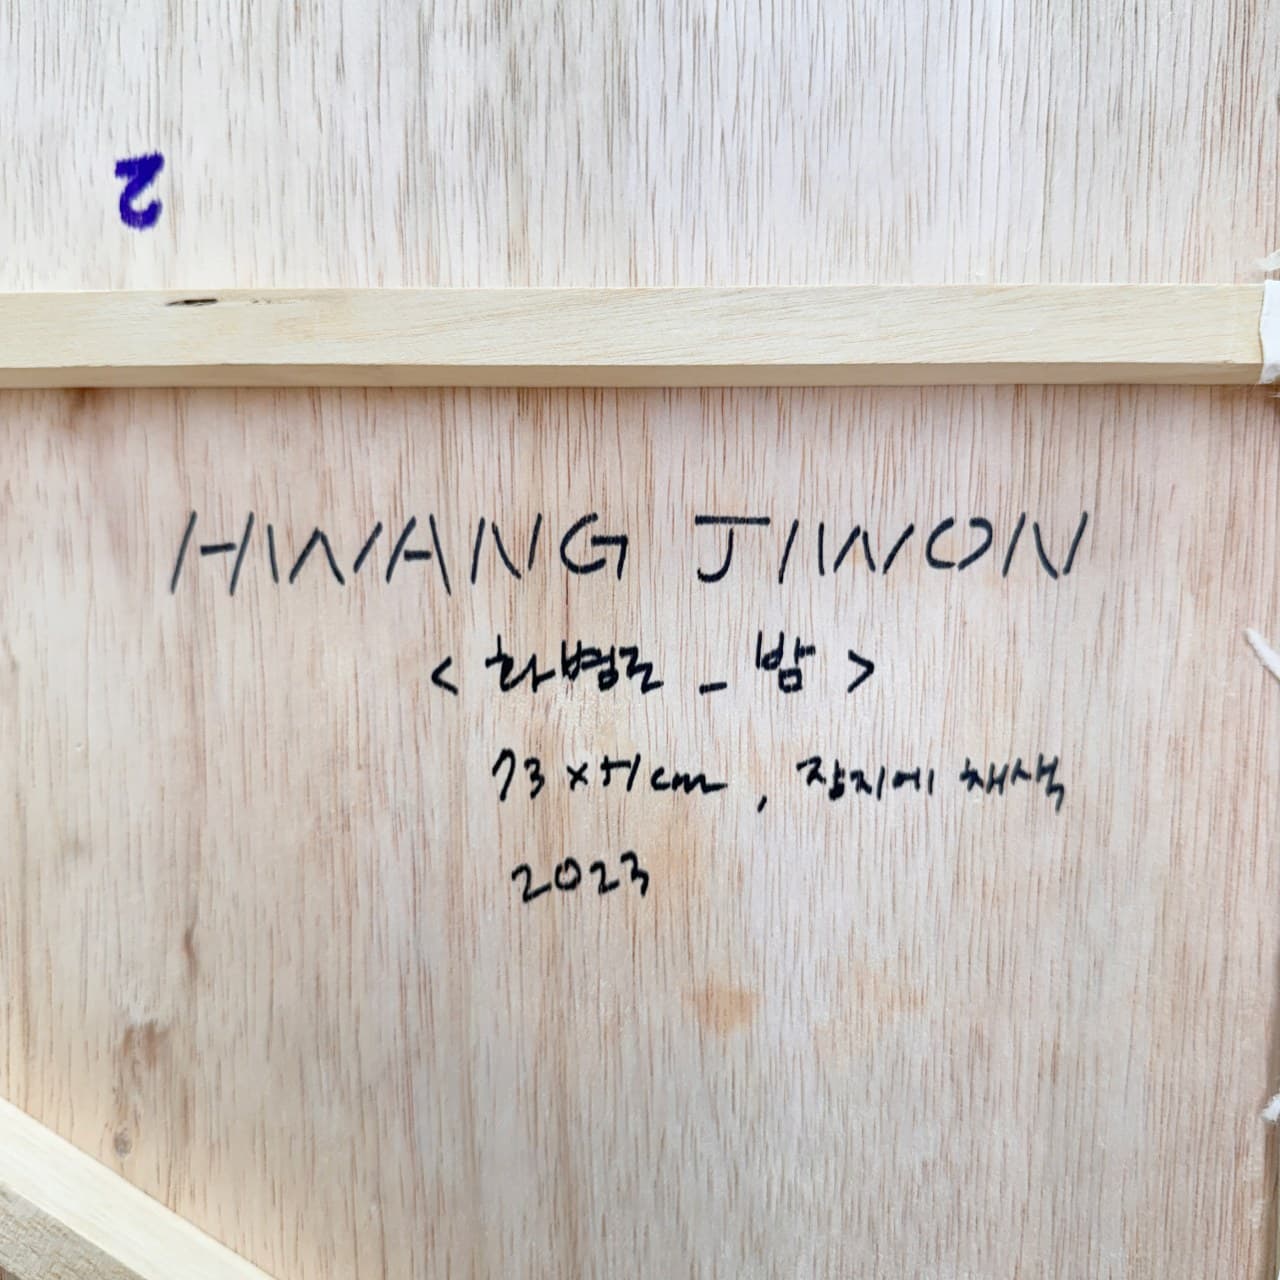 2
HWANG JIWON
< 화병도 _ 밤 >
73 x 51cm , 장지에 채색
2023